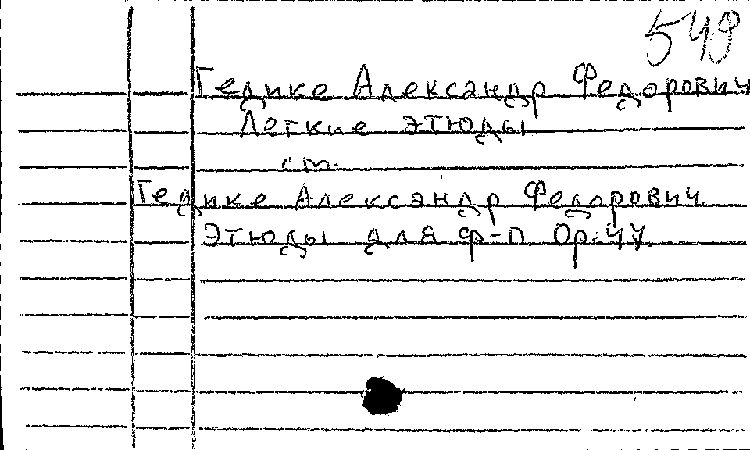 549
Гедике Александр Федорович
Легкие этюды
см.
Гедике Александр Федорович
Этюды для ф-п Ор.47.